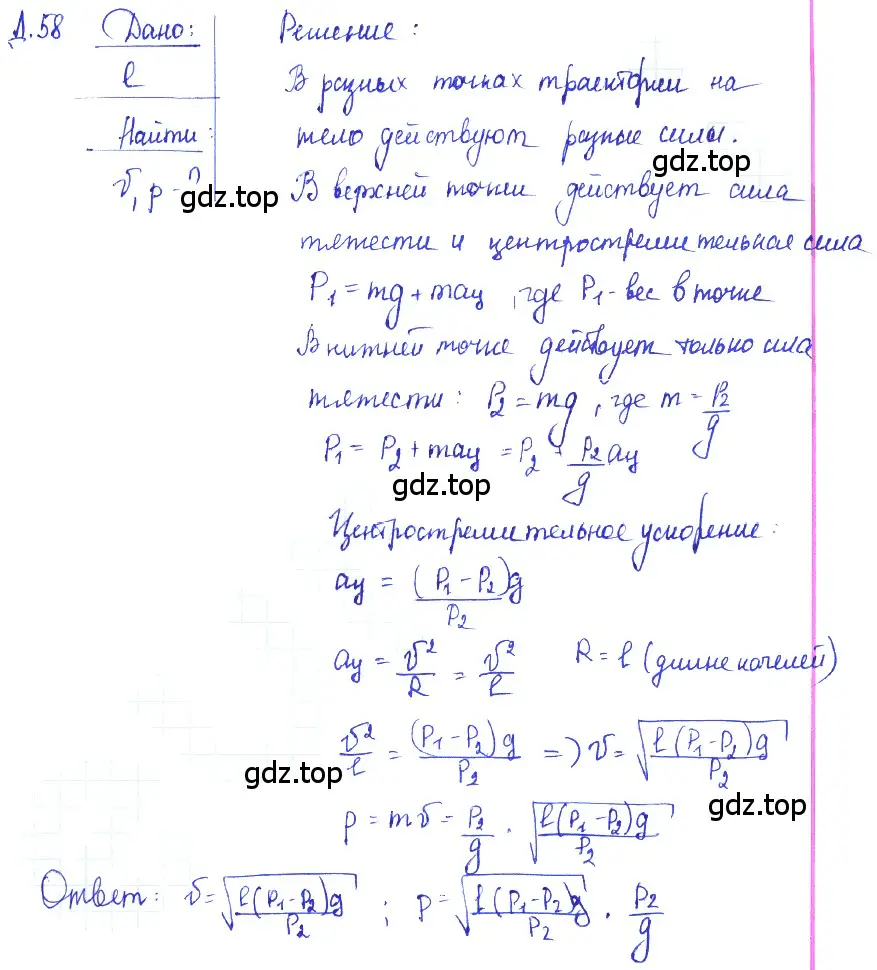 Д.58 Дано: Решение:
l В разных точках траектории на
Найти: тело действуют разные силы.
gdz.top
v, p - ? В верхней точки действует сила
gdz.top
тяжести и центростремительная сила
P₁ = mg + maц, где P₁ - вес в точке
В нижней точке действует только сила
тяжести: P₂ = mg, где m = P₂/g
P₁ = P₂ + maц = P₂ + P₂/g aц
gdz.top
Центростремительное ускорение:
aц = (P₁ - P₂)g/P₂
aц = v²/R = v²/l R = l (длине качелей)
v²/l = (P₁ - P₂)g/P₂ => v = √(l(P₁ - P₂)g/P₂)
gdz.top
gdz.top
p = mv = P₂/g · √(l(P₁ - P₂)g/P₂)
Ответ: v = √(l(P₁ - P₂)g/P₂); p = √(l(P₁ - P₂)g/P₂) · P₂/g